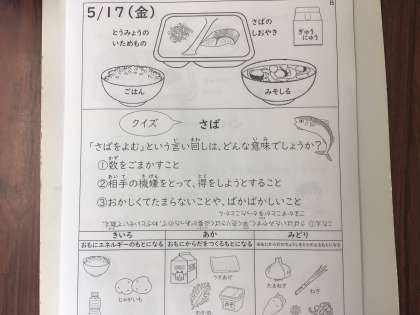 5/17(金)
とうみょうの
いためもの
さばの
しおやき
ぎゅう
にゅう
ごはん
みそしる
クイズ
さば
「さばをよむ」という言い回しは、どんな意味でしょうか?
①数をごまかすこと
②相手の機嫌をとって、得をしようとすること
③おかしくてたまらないことや、ばかばかしいこと
きいろ
あか
みどり
おもにエネルギーのもとになる
おもにからだをつくるもとになる
おもにからだのちょうしをととのえるもとになる
じゃがいも
うすあげ
わかめ
みそ
たまねぎ
ねぎ